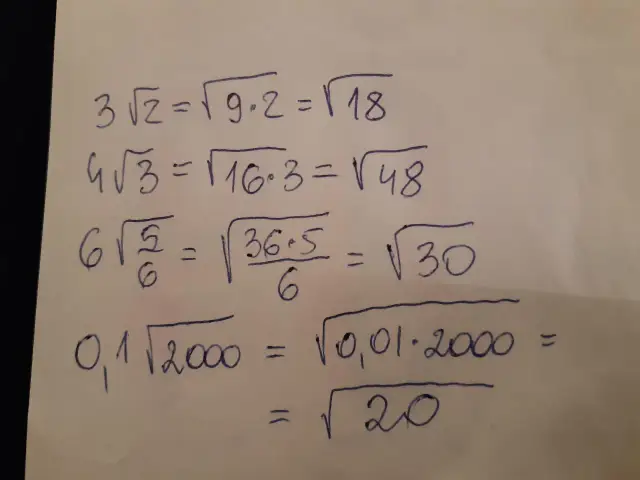 3√2 = √9·2 = √18
4√3 = √16·3 = √48
6√5/6 = √36·5/6 = √30
0,1√2000 = √0,01·2000 =
= √20